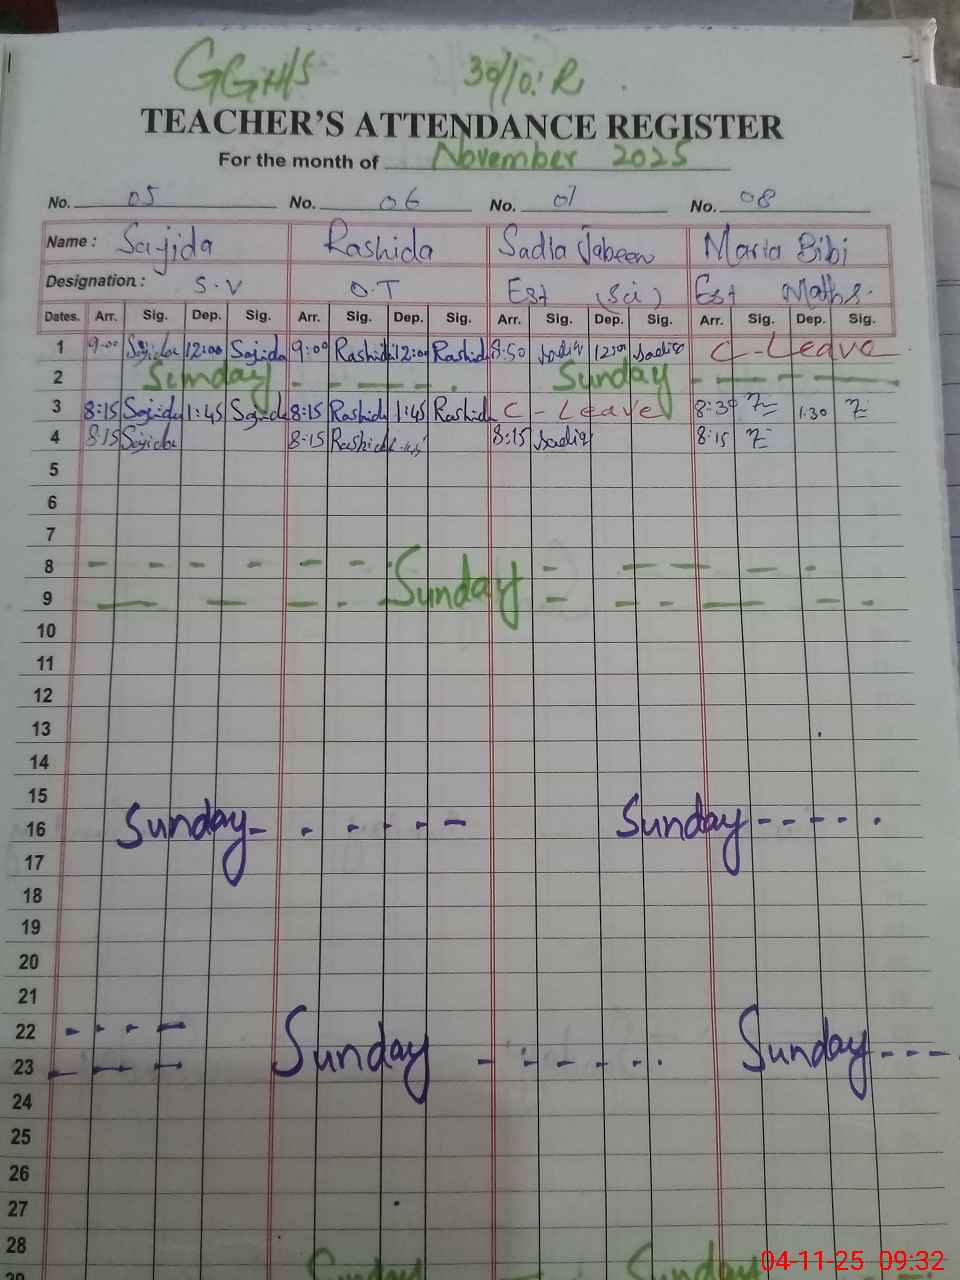 GGHS 39/10.R
TEACHER'S ATTENDANCE REGISTER
For the month of November 2025
No. 05 No. 06 No. 07 No. 08
Name : Sajida Rashida Sadia Jabeen Maria Bibi
Designation : S.V O.T Est (Sci) Est Maths.
Dates. Arr. Sig. Dep. Sig. Arr. Sig. Dep. Sig. Arr. Sig. Dep. Sig. Arr. Sig. Dep. Sig.
1 9:00 Sajida 12:00 Sajida 9:00 Rashida 12:00 Rashida 8:50 Sadia 1200 Sadia C-Leave
2 Sunday Sunday
3 8:15 Sajida 1:45 Sajida 8:15 Rashida 1:45 Rashida C-Leave 8:30 1:30
4 8:15 Sajida 8:15 Rashida 8:15 Sadia 8:15
5
6
7
8
Sunday
9
10
11
12
13
14
15
16 Sunday Sunday
17
18
19
20
21
22
23 Sunday Sunday
24
25
26
27
28
Sunday Sunday
04-11-25 09:32